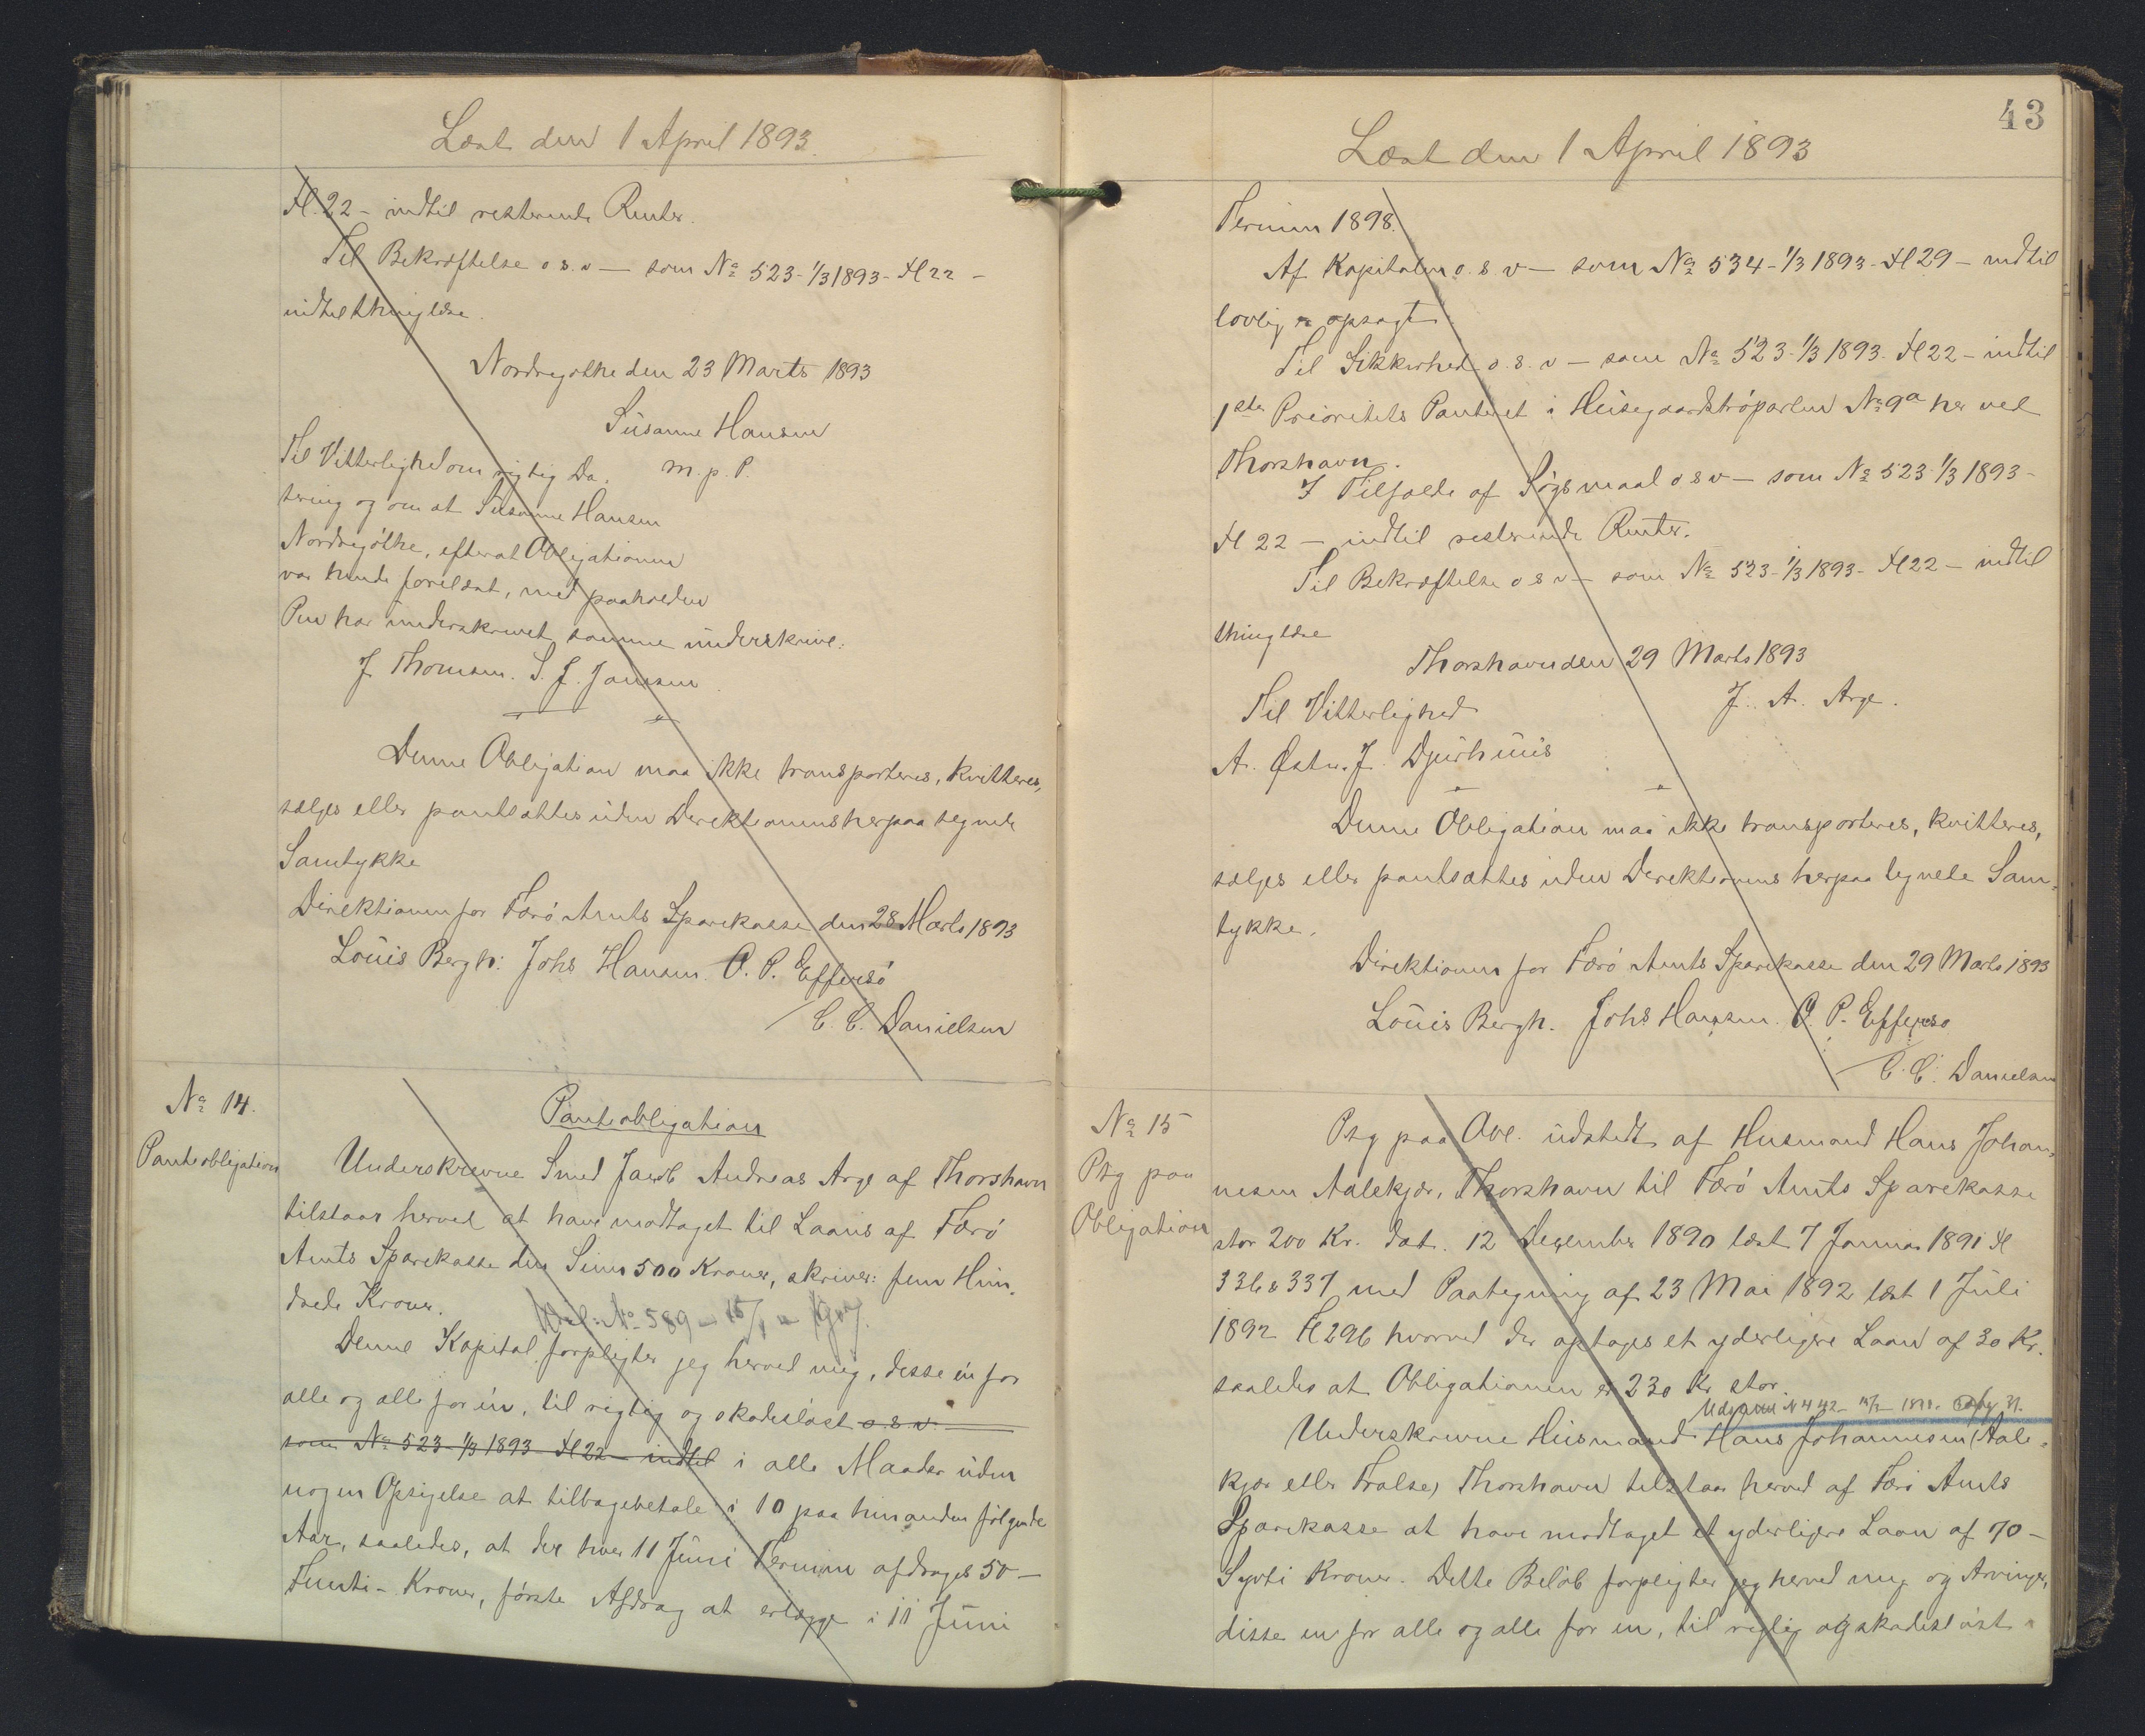 Læst den 1 April 1893.
Fl. 22 - indtil resterende Renter.
Til Bekræftelse o s. v - som No 523 - 1/3 1893 - Fl 22 -
indtil thinglæse.
Nordregøthe den 23 Marts 1893
Susanne Hansen
m. p. P.
Til Vitterlighed om rigtig Da-
tering og om at Susanne Hansen
Nordregøthe, efterat Obligationen
var hende forelæst, med paaholden
Pen har underskrevet samme underskrive:
J. Thomsen. S. J. Jansen
Denne Obligation maa ikke transporteres, kvitteres,
sælges eller pantsættes uden Direktionens herpaa tegnede
Samtykke
Direktionen for Færø Amts Sparekasse den 28 Marts 1893
Louis Bergh. Johs Hansen. O. P. Effersø
/ C. C. Danielsen
No 14.
Panteobligation
Panteobligation
Underskrevne Smed Jacob Andreas Arge af Thorshavn
tilstaar herved at have modtaget til Laans af Færø
Amts Sparekasse den Sum 500 Kroner, skriver: fem Hun-
drede Kroner.
Udsl: No 589 - 15/1 - 1907.
Denne Kapital forpligter jeg herved mig, disse én for
alle og alle for én, til rigtig og skadesløst o. s. v.
som No 523 - 1/3 1893 Fl 22 - indtil i alle Maader uden
nogen Opsigelse at tilbagebetale i 10 paa hinanden følgende
Aar, saaledes, at der hver 11 Juni Termin afdrages 50 -
Femti - Kroner, første Afdrag at erlægge i 11 Juni
43
Læst den 1 April 1893
Termin 1898.
Af Kapitalen o. s v - som No 534 - 1/3 1893 - Fl 29 - indtil
lovlig opsagt
Til Sikkerhed o. s. v - som No 523 - 1/3 1893. Fl 22 - indtil
1ste Prioritets Panteret i Husegaardströparten No 9a her ved
Thorshavn.
I Tilfælde af Søgsmaal o s v - som No 523 1/3 1893 -
Fl 22 - indtil resterende Renter.
Til Bekræftelse o s v - som No 523 - 1/3 1893 - Fl 22 - indtil
thinglæse
Thorshavn den 29 Marts 1893
J. A. Arge.
Til Vitterlighed
A. Østr. J. Djurhuus
Denne Obligation maa ikke transporteres, kvitteres,
sælges eller pantsættes uden Direktionens herpaa tegnede Sam-
tykke.
Direktionen for Færø Amts Sparekasse den 29 Marts 1893
Louis Bergh. Johs Hansen. O. P. Effersø
/ C. C. Danielsen
No 15
Ptg paa
Obligation
Ptg paa Obl. udstedt af Husmand Hans Johan-
nesen Aalekjær, Thorshavn til Færø Amts Sparekasse
stor 200 Kr. dat. 12 December 1890 læst 7 Januar 1891 Fl
336 & 337 med Paategning af 23 Mai 1892 læst 1 Juli
1892 Fl 296 hvorved der optages et yderligere Laan af 30 Kr.
saaledes at Obligationen er 230 Kr stor.
Underskrevne Husmand Hans Johannesen (Aale-
kjær eller Fralse) Thorshavn tilstaar herved af Færø Amts
Sparekasse at have modtaget et yderligere Laan af 70 -
Syvti Kroner. Dette Beløb forpligter jeg herved mig og Arvinger,
disse en for alle og alle for en, til rigtig og skadesløst